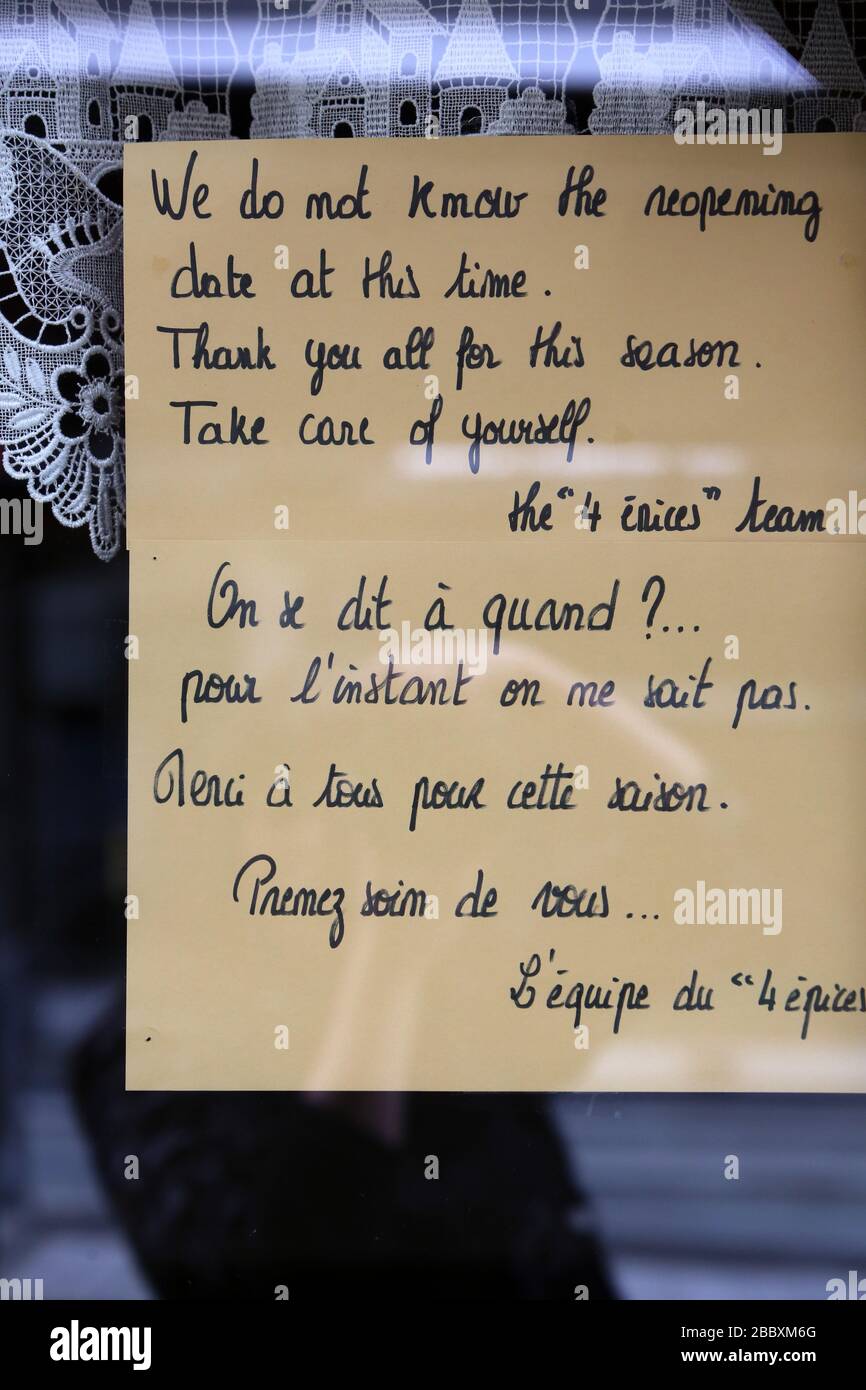 We do not know the reopening
date at this time.
Thank you all for this season.
Take care of yourself.
the "4 épices" team.
On se dit à quand ?...
pour l'instant on ne sait pas.
Merci à tous pour cette saison.
Prenez soin de vous...
L'équipe du "4 épices
alamy
Image ID: 2BBXM6G
www.alamy.com